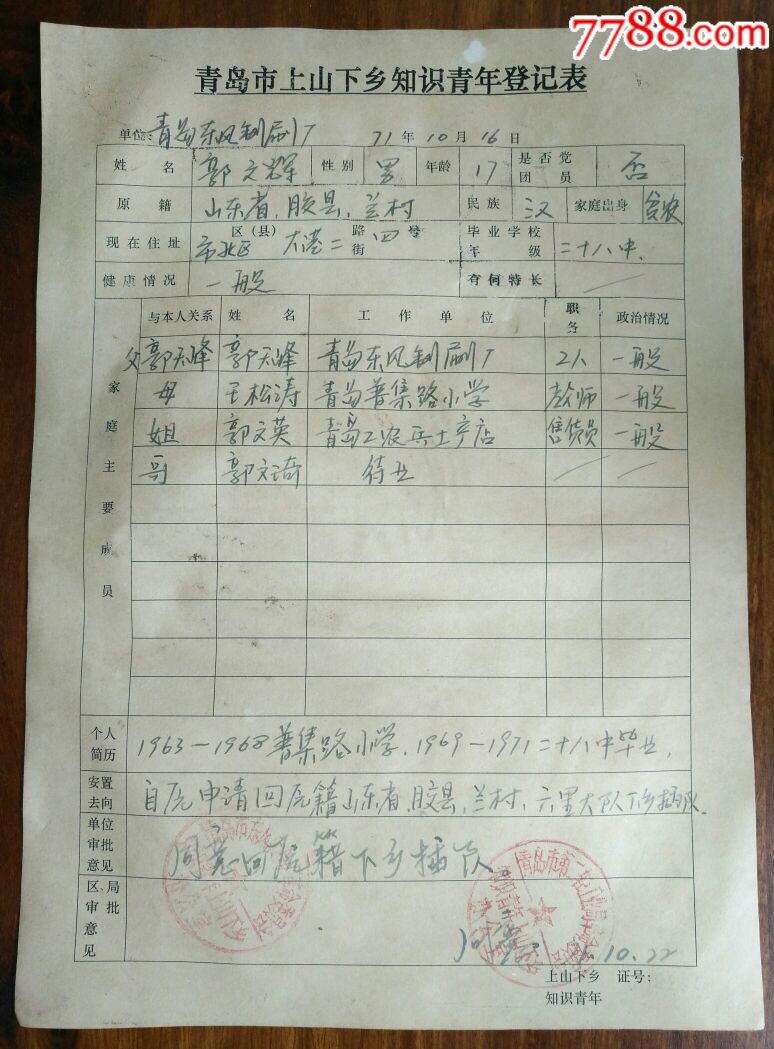 7788.com
青岛市上山下乡知识青年登记表
单位：青岛东风制刷厂 71年10月16日
姓名 郭文辉 性别 男 年龄 17 是否党团员 否
原籍 山东省，胶县，兰村 民族 汉 家庭出身 贫农
现在住址 市北区 区（县） 大港二 路街 四号 毕业学校年级 二十八中.
健康情况 一般 有何特长 /
家庭主要成员
与本人关系 姓名 工作单位 职务 政治情况
父 郭天峰 郭天峰 青岛东风制刷厂 工人 一般
母 王松涛 青岛普集路小学 教师 一般
姐 郭文英 青岛工农兵土产店 售货员 一般
哥 郭文琦 待业 / /
个人简历 1963－1968普集路小学.1969－1971二十八中毕业，
安置去向 自愿申请回原籍山东省，胶县，兰村，六里大队下乡插队.
单位审批意见 同意回原籍下乡插队
区、局审批意见 同意 10.22
上山下乡 证号：
知识青年